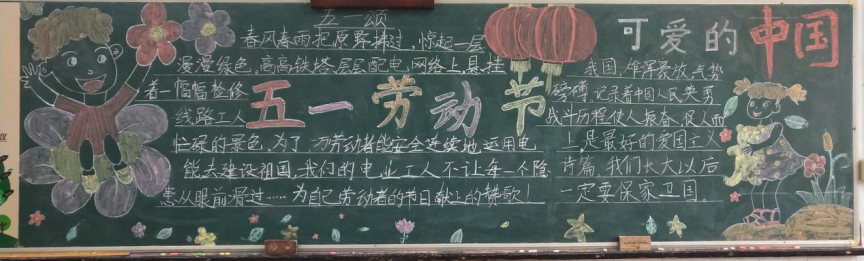 五一颂
春风春雨把原野拂过,惊起一层
漫漫绿色,高高铁塔层层配电,网络上悬挂
着一幅幅检修
线路工人
忙碌的景色,为了万劳动者能安全连续地运用电
能去建设祖国,我们的电业工人不让每一个隐
患从眼前滑过……为自己劳动者的节日献上的赞歌!
五一劳动节
可爱的中国
我国,雄浑豪放气势
磅礴,记录着中国人民英勇
战斗历程使人振奋,促人向
上,是最好的爱国主义
诗篇,我们长大以后
一定要保家卫国。